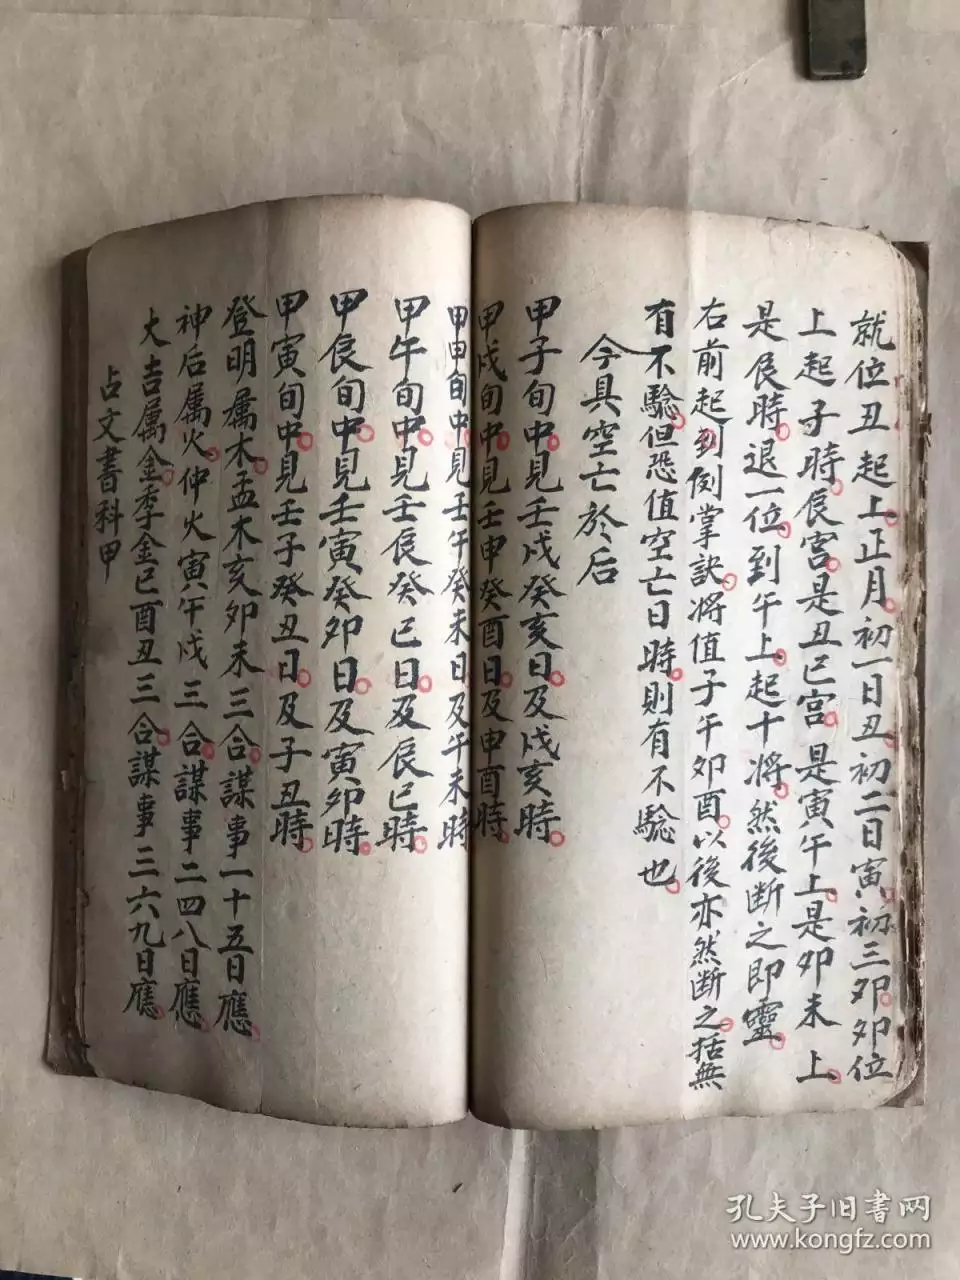 就位丑起上正月初一日丑初二日寅初三卯卯位
上起子時辰宮是丑巳宮是寅午上是卯未上
是辰時退一位到午上起十將然後断之即靈
右前起到例掌訣将值子午卯酉以後亦然断之括無
有不騐但恐值空亡日時則有不騐也
今具空亡於后
甲子旬中見壬戌癸亥日及戌亥時
甲戌旬中見壬申癸酉日及申酉時
甲申旬中見壬午癸未日及午未時
甲午旬中見壬辰癸巳日及辰巳時
甲辰旬中見壬寅癸卯日及寅卯時
甲寅旬中見壬子癸丑日及子丑時
登明属木孟木亥卯未三合謀事一十五日應
神后属火仲火寅午戌三合謀事二四八日應
大吉属金季金巳酉丑三合謀事三六九日應
占文書科甲
孔夫子旧書网
www.kongfz.com